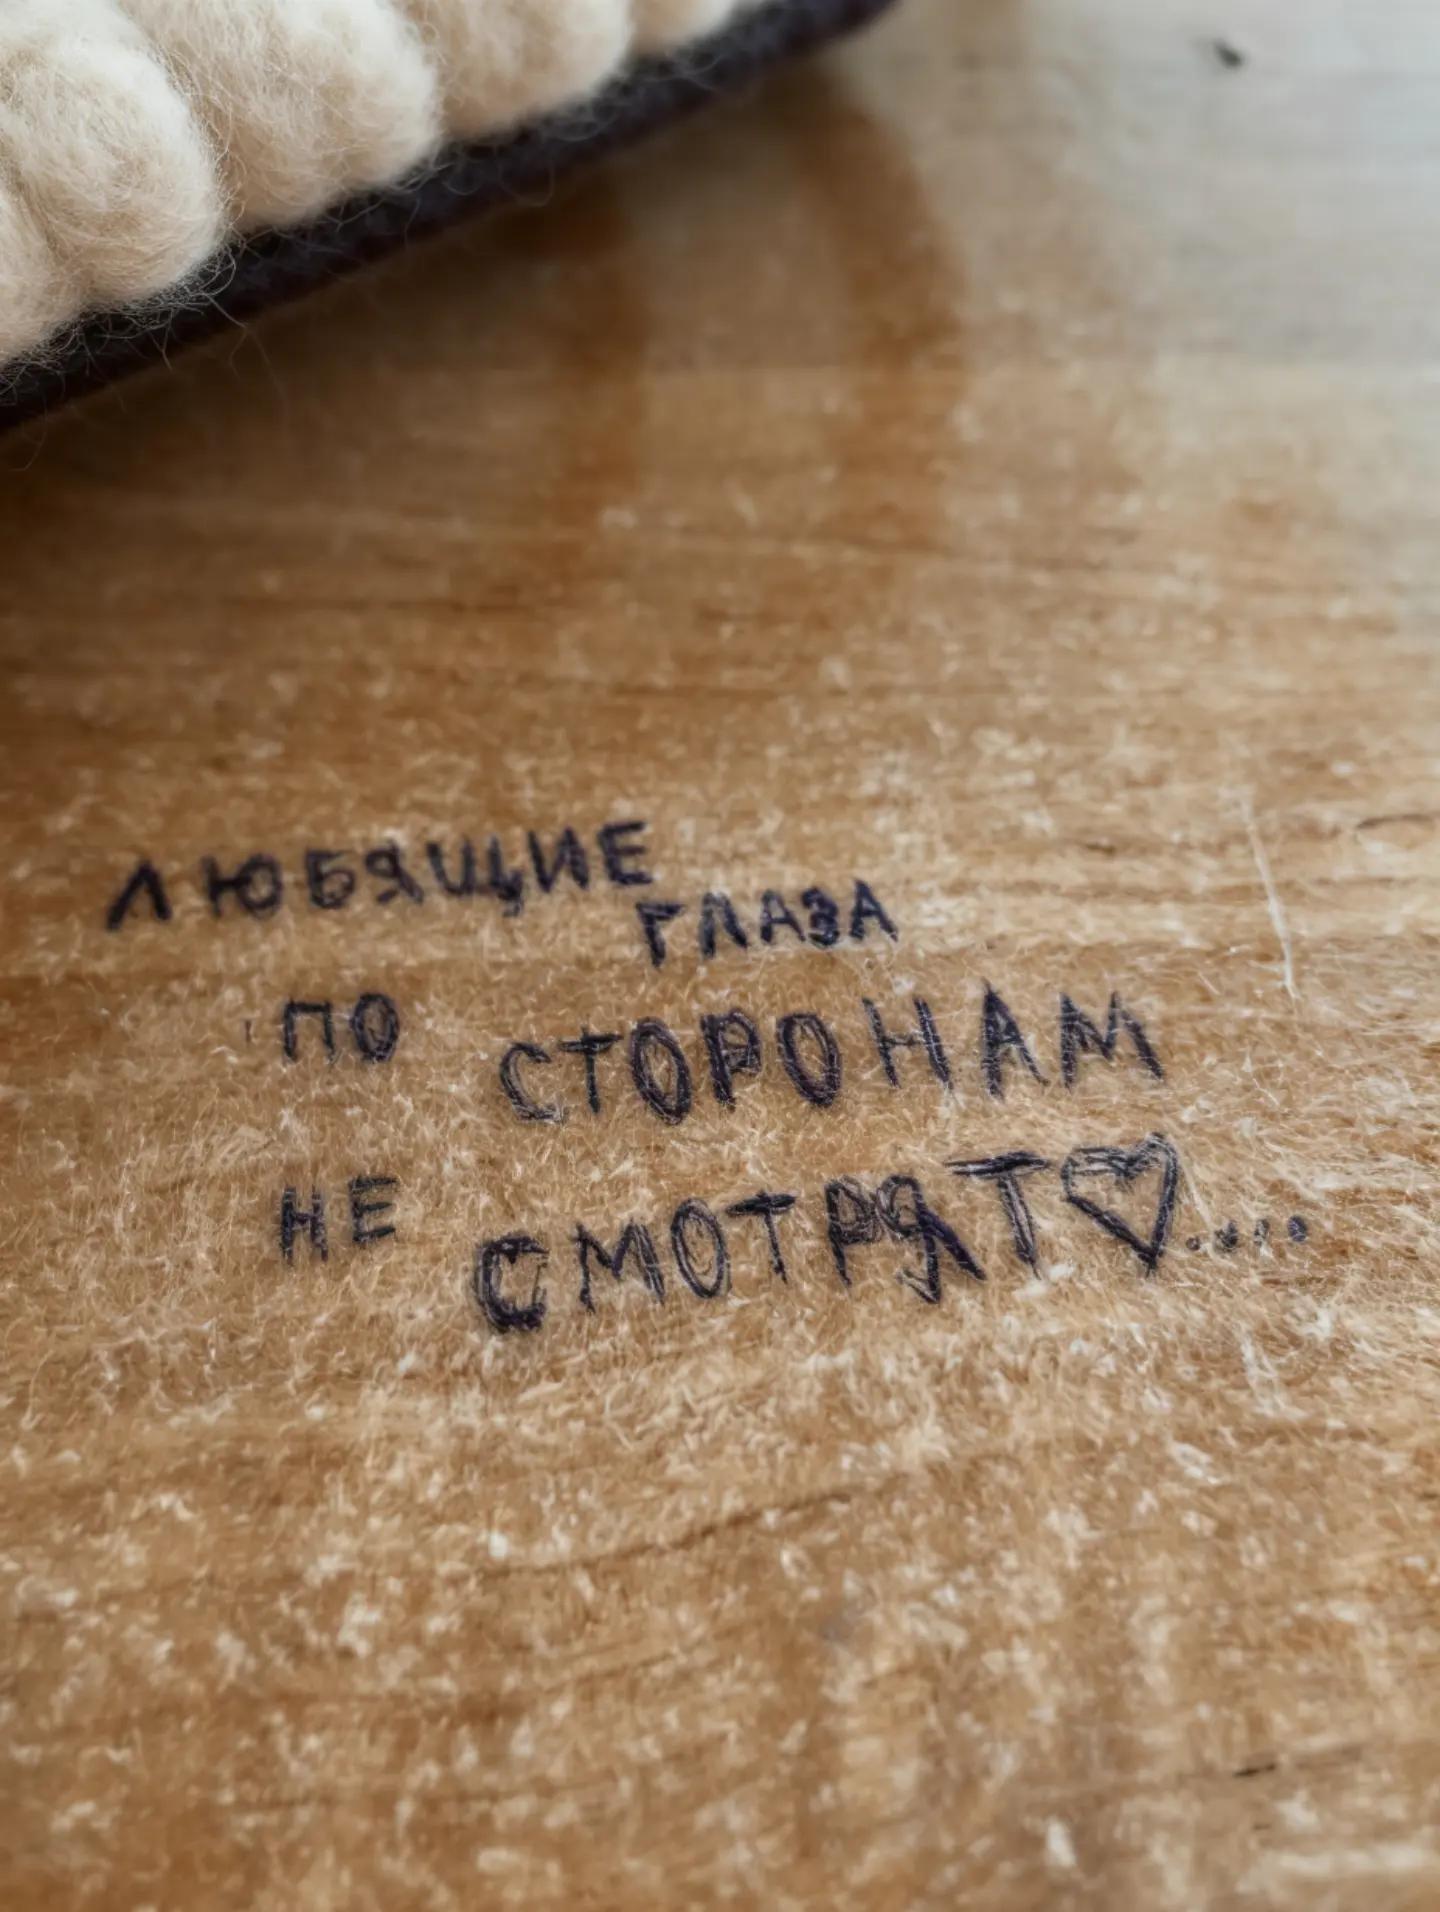 ЛЮБЯЩИЕ
ГЛАЗА
ПО СТОРОНАМ
НЕ СМОТРЯТ♡.....